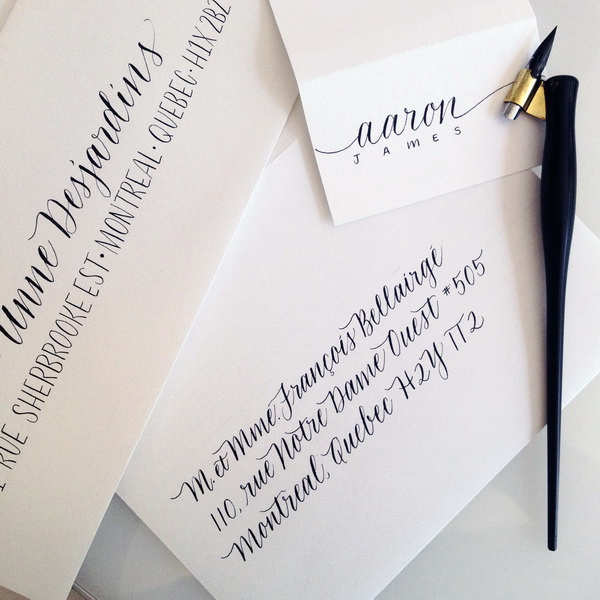 anne Desjardins
RUE SHERBROOKE EST • MONTREAL • QUEBEC • H1X 2B2
aaron
JAMES
M. et Mme. François Bellairgé
110, rue Notre Dame Ouest #505
Montreal, Quebec H2Y 1T2